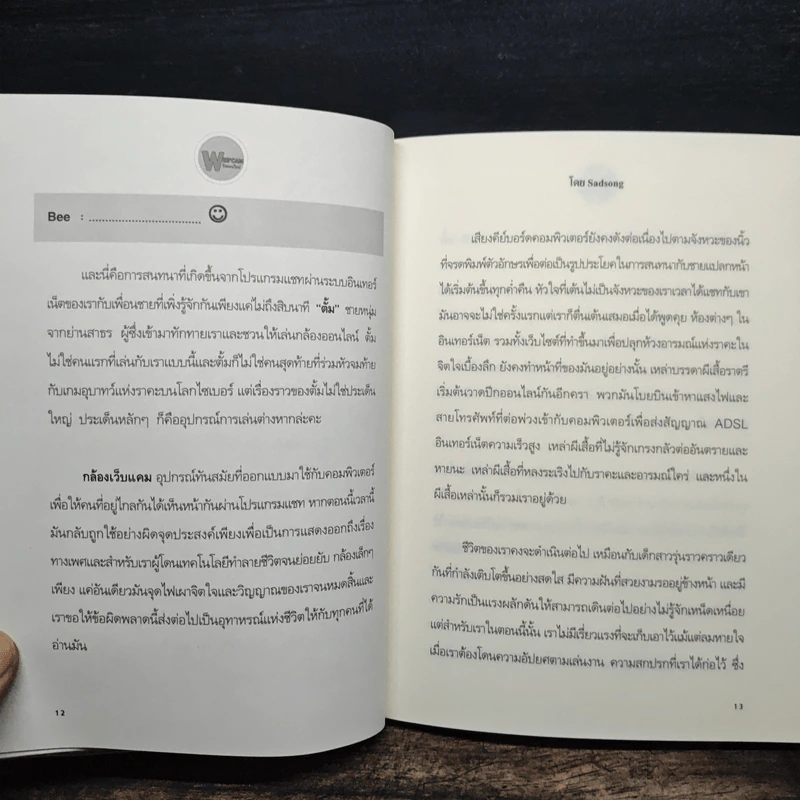 WEB*CAM
Bee : ................................ ☺
และนี่คือการสนทนาที่เกิดขึ้นจากโปรแกรมแชทผ่านระบบอินเทอร์
เน็ตของเรากับเพื่อนชายที่เพิ่งรู้จักกันเพียงแค่ไม่ถึงสิบนาที “ตั้ม” ชายหนุ่ม
จากย่านสาธร ผู้ซึ่งเข้ามาทักทายเราและชวนให้เล่นกล้องออนไลน์ ตั้ม
ไม่ใช่คนแรกที่เล่นกับเราแบบนี้และตั้มก็ไม่ใช่คนสุดท้ายที่ร่วมหัวจมท้าย
กับเกมอุบาทว์แห่งราคะบนโลกไซเบอร์ แต่เรื่องราวของตั้มไม่ใช่ประเด็น
ใหญ่ ประเด็นหลักๆ ก็คืออุปกรณ์การเล่นต่างหากล่ะคะ
กล้องเว็บแคม อุปกรณ์ทันสมัยที่ออกแบบมาใช้กับคอมพิวเตอร์
เพื่อให้คนที่อยู่ไกลกันได้เห็นหน้ากันผ่านโปรแกรมแชท หากตอนนี้เวลานี้
มันกลับถูกใช้อย่างผิดจุดประสงค์เพียงเพื่อเป็นการแสดงออกถึงเรื่อง
ทางเพศและสำหรับเราผู้โดนเทคโนโลยีทำลายชีวิตจนย่อยยับ กล้องเล็กๆ
เพียง แค่อันเดียวมันจุดไฟเผาจิตใจและวิญญาณของเราจนหมดสิ้นและ
เราขอให้ข้อผิดพลาดนี้ส่งต่อไปเป็นอุทาหรณ์แห่งชีวิตให้กับทุกคนที่ได้
อ่านมัน
12
โดย Sadsong
เสียงคีย์บอร์ดคอมพิวเตอร์ยังคงดังต่อเนื่องไปตามจังหวะของนิ้ว
ที่จรดพิมพ์ตัวอักษรเพื่อต่อเป็นรูปประโยคในการสนทนากับชายแปลกหน้า
ได้เริ่มต้นขึ้นทุกค่ำคืน หัวใจที่เต้นไม่เป็นจังหวะของเราเวลาได้แชทกับเขา
มันอาจจะไม่ใช่ครั้งแรกแต่เราก็ตื่นเต้นเสมอเมื่อได้พูดคุย ห้องต่างๆ ใน
อินเทอร์เน็ต รวมทั้งเว็บไซต์ที่ทำขึ้นมาเพื่อปลุกห้วงอารมณ์แห่งราคะใน
จิตใจเบื้องลึก ยังคงทำหน้าที่ของมันอยู่อย่างนั้น เหล่าบรรดาผีเสื้อราตรี
เริ่มต้นวาดปีกออนไลน์กันอีกครา พวกมันโบยบินเข้าหาแสงไฟและ
สายโทรศัพท์ที่ต่อพ่วงเข้ากับคอมพิวเตอร์เพื่อส่งสัญญาณ ADSL
อินเทอร์เน็ตความเร็วสูง เหล่าผีเสื้อที่ไม่รู้จักเกรงกลัวต่ออันตรายและ
หายนะ เหล่าผีเสื้อที่หลงระเริงไปกับราคะและอารมณ์ใคร่ และหนึ่งใน
ผีเสื้อเหล่านั้นก็รวมเราอยู่ด้วย
ชีวิตของเราคงจะดำเนินต่อไป เหมือนกับเด็กสาวรุ่นราวคราวเดียว
กันที่กำลังเติบโตขึ้นอย่างสดใส มีความฝันที่สวยงามรออยู่ข้างหน้า และมี
ความรักเป็นแรงผลักดันให้สามารถเดินต่อไปอย่างไม่รู้จักเหน็ดเหนื่อย
แต่สำหรับเราในตอนนี้นั้น เราไม่มีเรี่ยวแรงที่จะเก็บเอาไว้แม้แต่ลมหายใจ
เมื่อเราต้องโดนความอัปยศตามเล่นงาน ความสกปรกที่เราได้ก่อไว้ ซึ่ง
13